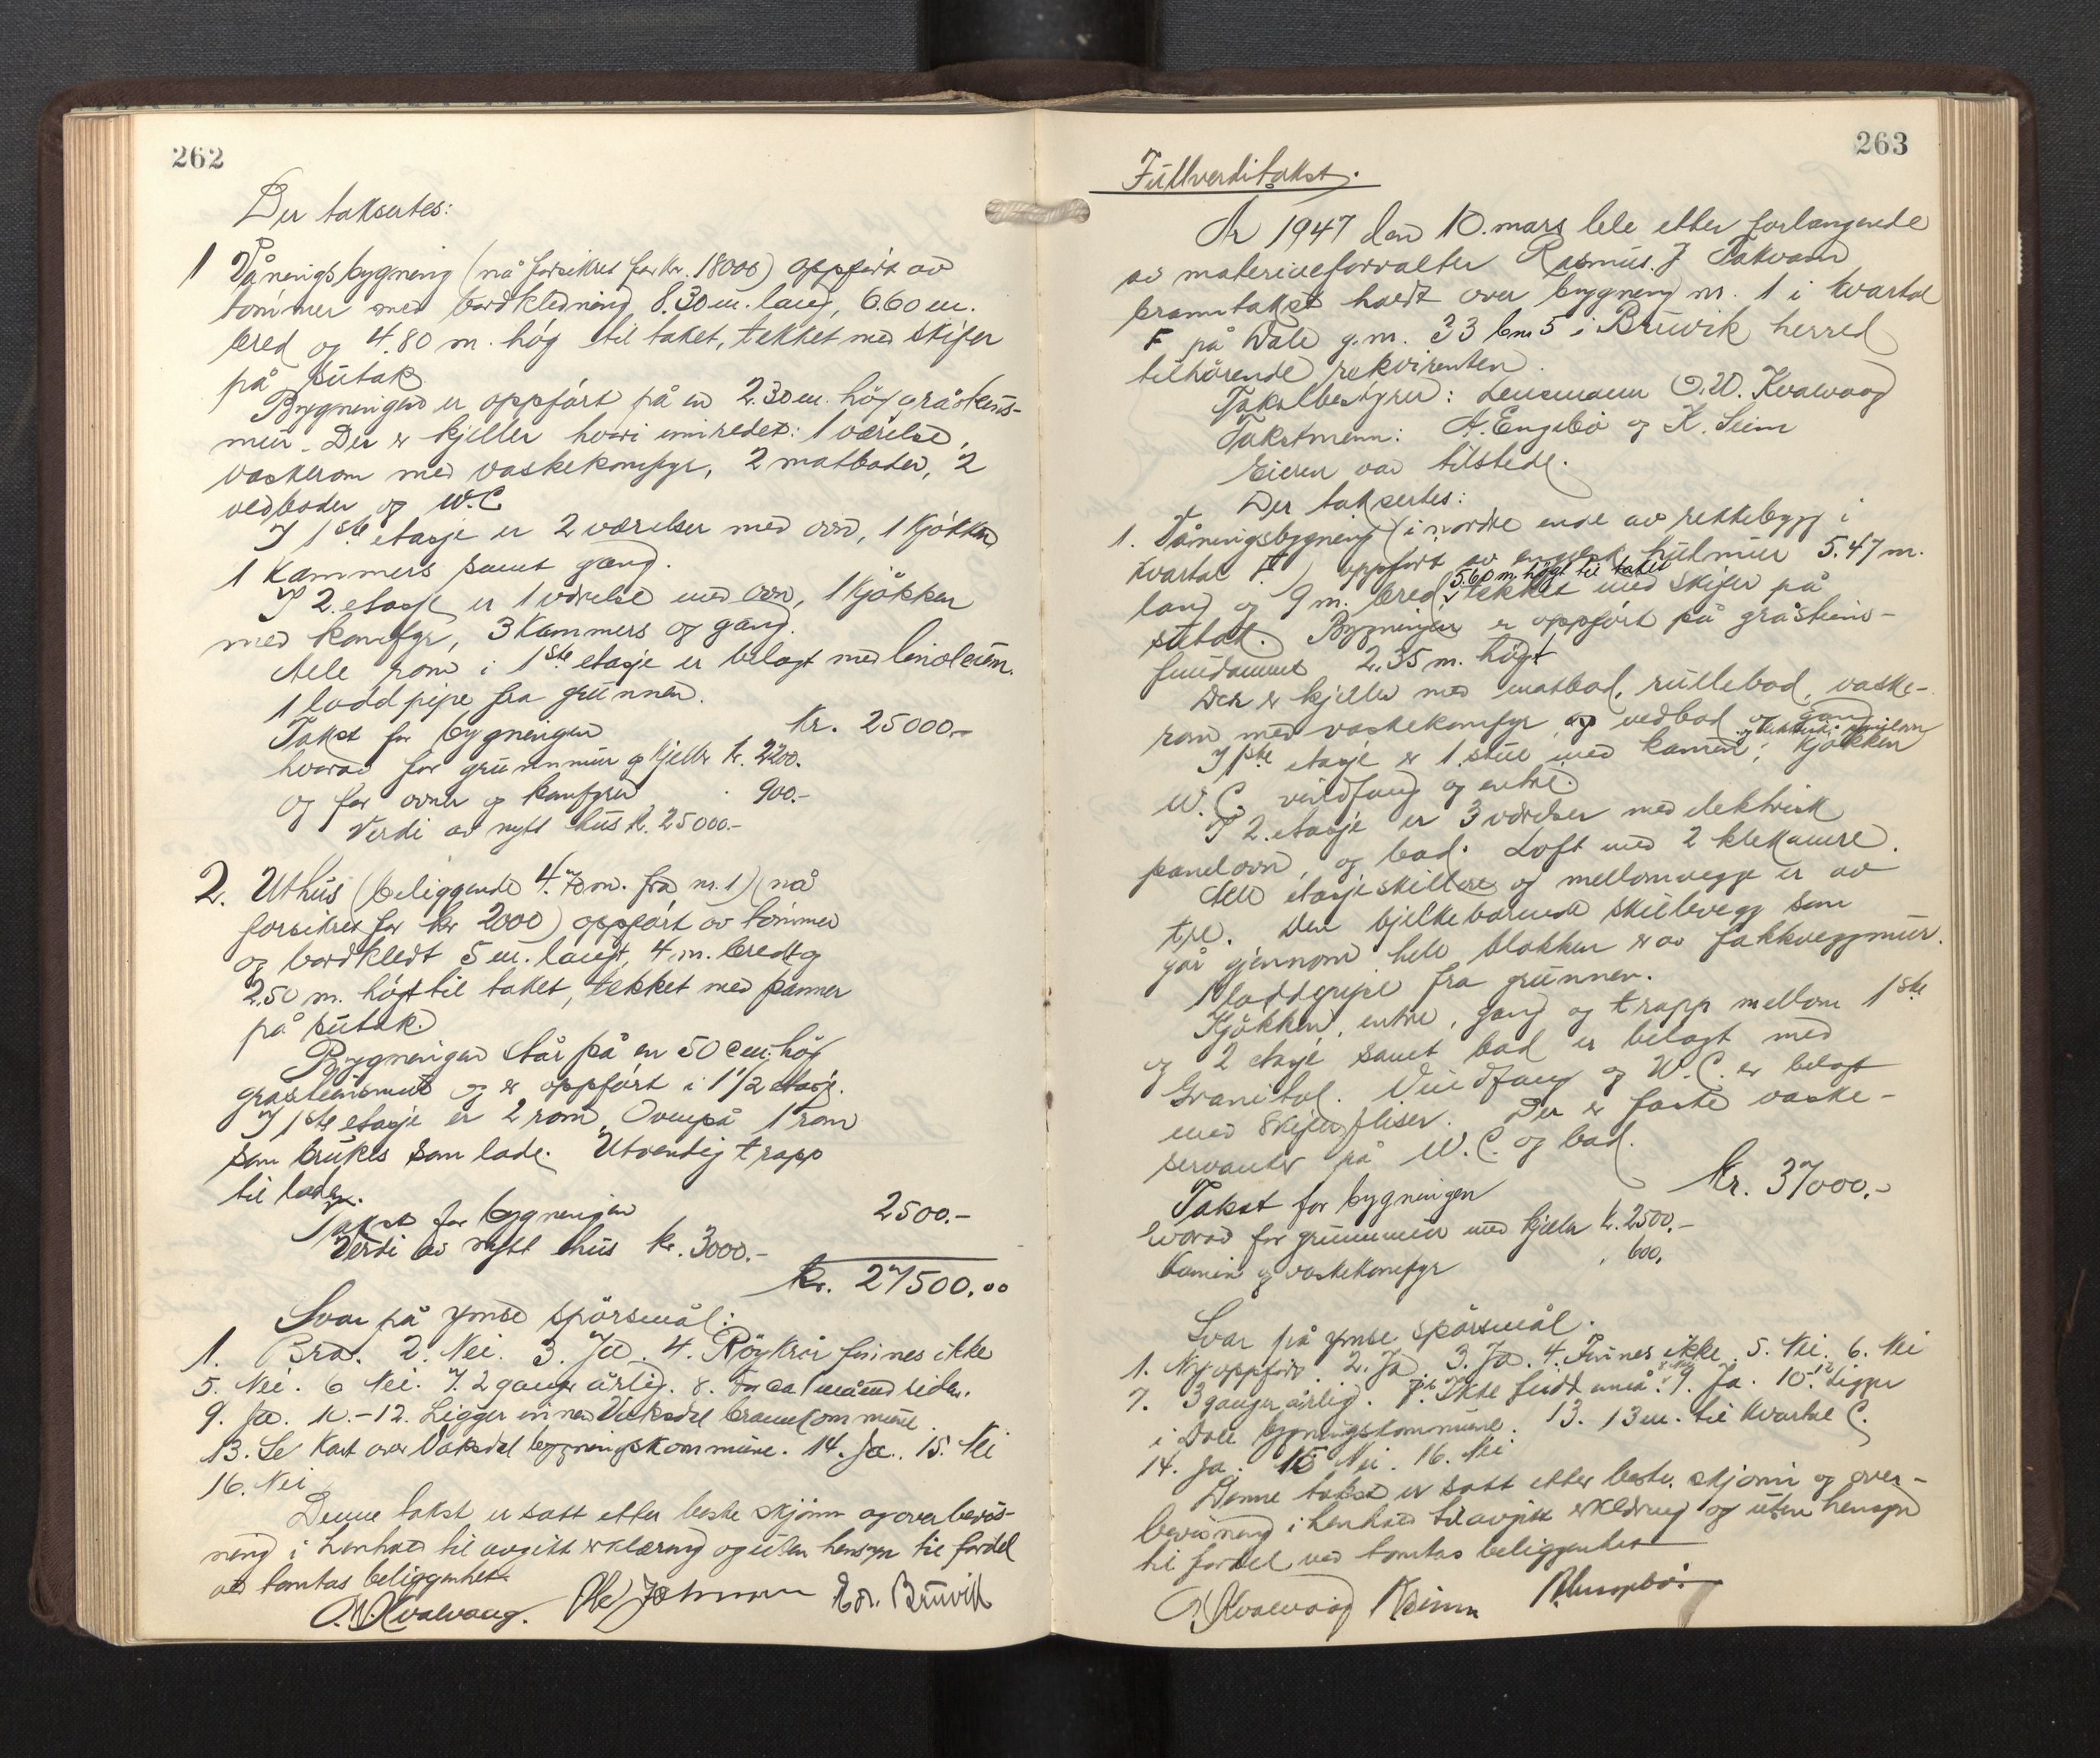 262
Der taksertes:
1 Våningsbygning (nå forsikret for kr. 18000) oppført av
tømmer med bordkledning 8.30 m. lang, 6.60 m.
bred og 4.80 m. høg til taket, tekket med skifer
på sutak
Bygningen er oppført på en 2.30 m. høg gråsteins-
mur. Der er kjeller hvori innredet: 1 værelse,
vaskerom med vaskekomfyr, 2 matboder, 2
vedboder og W.C
I 1ste etasje er 2 værelser med ovn, 1 kjøkken
1 kammers samt gang.
I 2. etasje er 1 værelse med ovn, 1 kjøkken
med komfyr, 3 kammers og gang.
Alle rom i 1ste etasje er belagt med linoleum.
1 lodd pipe fra grunnen.
Takst for bygningen kr. 25000.-
hvorav for grunnmur og kjeller kr. 2200.
og for ovner og komfyrer 900.-
Verdi av nytt hus kr. 25000.-
2. Uthus (beliggende 4.70 m. fra nr. 1) (nå
forsikret for kr 2000) oppført av tømmer
og bordkledt 5 m. langt, 4 m. bredt og
2.50 m. høgt til taket, tekket med panner
på sutak.
Bygningen står på en 50 cm. høg
gråsteinsmur og er oppført i 1 1/2 etasje.
I 1ste etasje er 2 rom. Ovenpå 1 rom
som brukes som lade. Utvendig trapp
til laden.
Takst for bygningen 2500.-
Verdi av nytt hus kr. 3000.-
kr. 27500.00
Svar på ymse spørsmål:
1. Bra. 2. Nei. 3. Ja. 4. Røykrør finnes ikke
5. Nei. 6 Nei. 7. 2 ganger årlig. 8. for ca 1 måned siden.
9. Ja. 10.-12. Ligger innen Vaksdal brannkommune.
13. Se kart over Vaksdal bygningskommune. 14. Ja. 15. Nei
16. Nei
Denne takst er satt etter beste skjønn og overbevis-
ning i henhold til avgitt erklæring og uten hensyn til fordel
ved tomtas beliggenhet.
O. W. Kvalvaag. Ole Johnsen Bruvik
263
Fullverditakst.
År 1947 den 10. mars ble etter forlangende
av materialforvalter Rasmus J Takvam
branntakst holdt over bygning nr. 1 i kvartal
F på Dale g.nr. 33 bnr 5 i Bruvik herred
tilhørende rekvirenten.
Takstbestyrer: Lensmann O. W. Kvalvaag
Takstmenn: A. Engebø og K. Seim
Eieren var tilstede.
Der taksertes:
1. Våningsbygning (i nordre ende av rekkebygg i
kvartal F) oppført av engelsk hulmur 5.47 m.
lang og 9 m. bred, 5.60 m. høgt til taket tekket med skifer på
sutak. Bygningen er oppført på gråsteins-
fundament 2.35 m. høgt
Der er kjeller med matbod, rullebod, vaske-
rom med vaskekomfyr og vedbod og gang
I 1ste etasje er 1 stue med kamin og elektrisk panelovn, kjøkken
W.C, vindfang og entre.
I 2. etasje er 3 værelser med elektrisk
panelovn, og bad. Loft med 2 klekamre.
Alle etasjeskillere og mellomvegge er av
tre. Den bjelkebærende skillevegg som
går gjennom hele blokken er av fakkveggmur.
1 loddpipe fra grunnen.
Kjøkken, entre, gang og trapp mellom 1ste
og 2 etasje samt bad er belagt med
Granitol. Vindfang og W.C. er belagt
med skiferfliser. Der er faste vaske-
servanter på W.C. og bad.
Takst for bygningen kr. 37000.-
hvorav for grunnmur med kjeller kr. 2500.-
kamin og vaskekomfyr 600.
Svar på ymse spørsmål.
1. Ny oppført. 2. Ja 3. Ja. 4. Finnes ikke. 5. Nei. 6. Nei
7. 3 ganger årlig. 8. Ikke feidd ennå. 9. Ja. 10.-12 Ligger
i Dale bygningskommune. 13. 13 m. til kvartal C.
14. Ja. 15 Nei. 16. Nei
Denne takst er satt etter beste skjønn og over-
bevisning i henhold til avgitt erklæring og uten hensyn
til fordel ved tomtas beliggenhet
O. W. Kvalvaag K Seim A. Engebø.